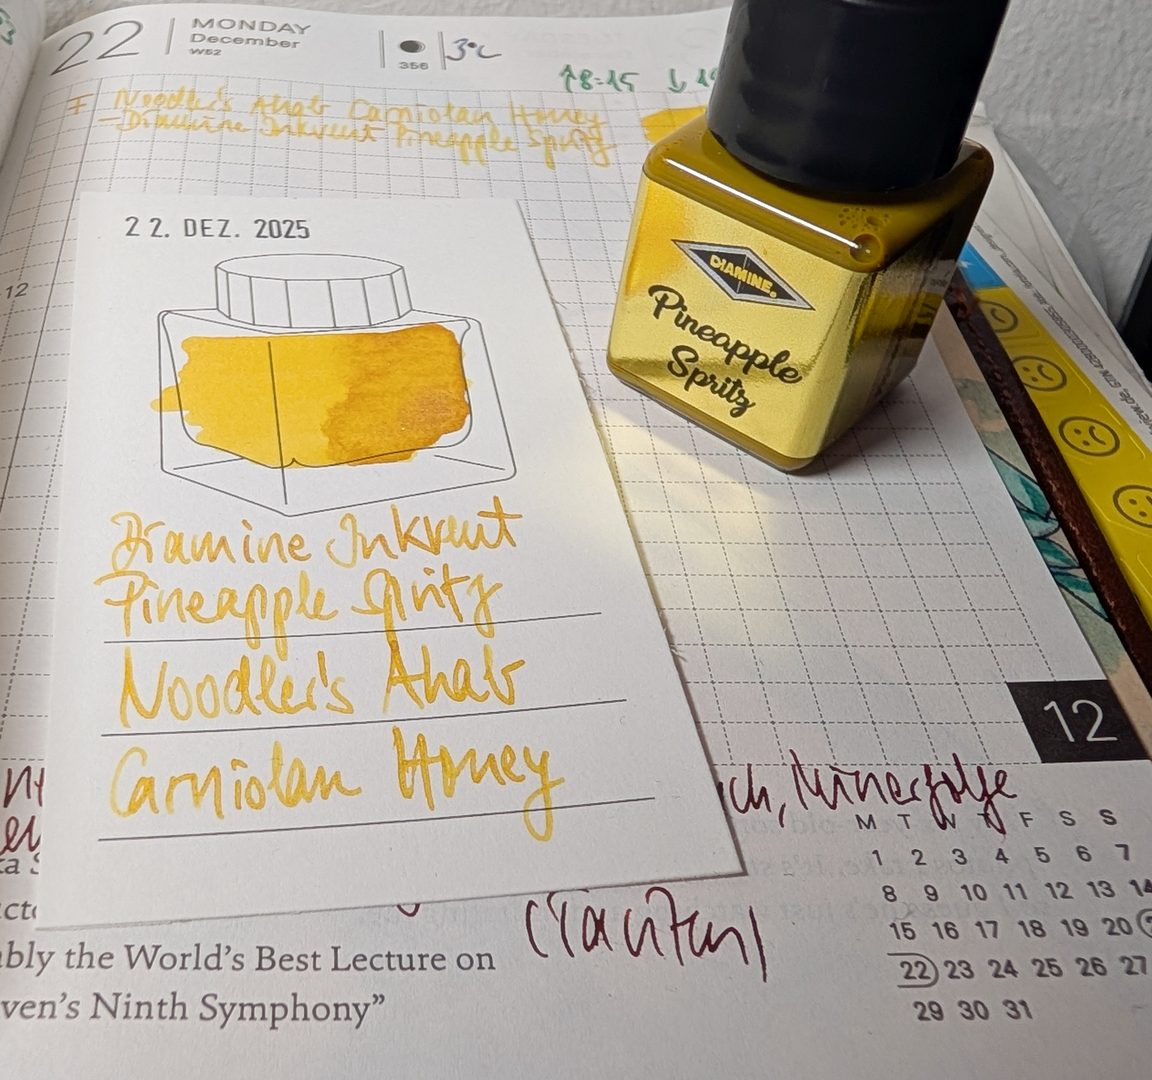 22
MONDAY
December
W52
356
3°C
↑8:15 ↓
Noodler's Ahab Carniolan Honey
- Diamine Inkvent Pineapple Spritz
22. DEZ. 2025
DIAMINE.
Pineapple
Spritz
12
Diamine Inkvent
Pineapple Spritz
Noodler's Ahab
Carniolan Honey
12
M T W T F S S
1 2 3 4 5 6 7
8 9 10 11 12 13 14
15 16 17 18 19 20
22 23 24 25 26 27
29 30 31
ably the World's Best Lecture on
ven's Ninth Symphony"